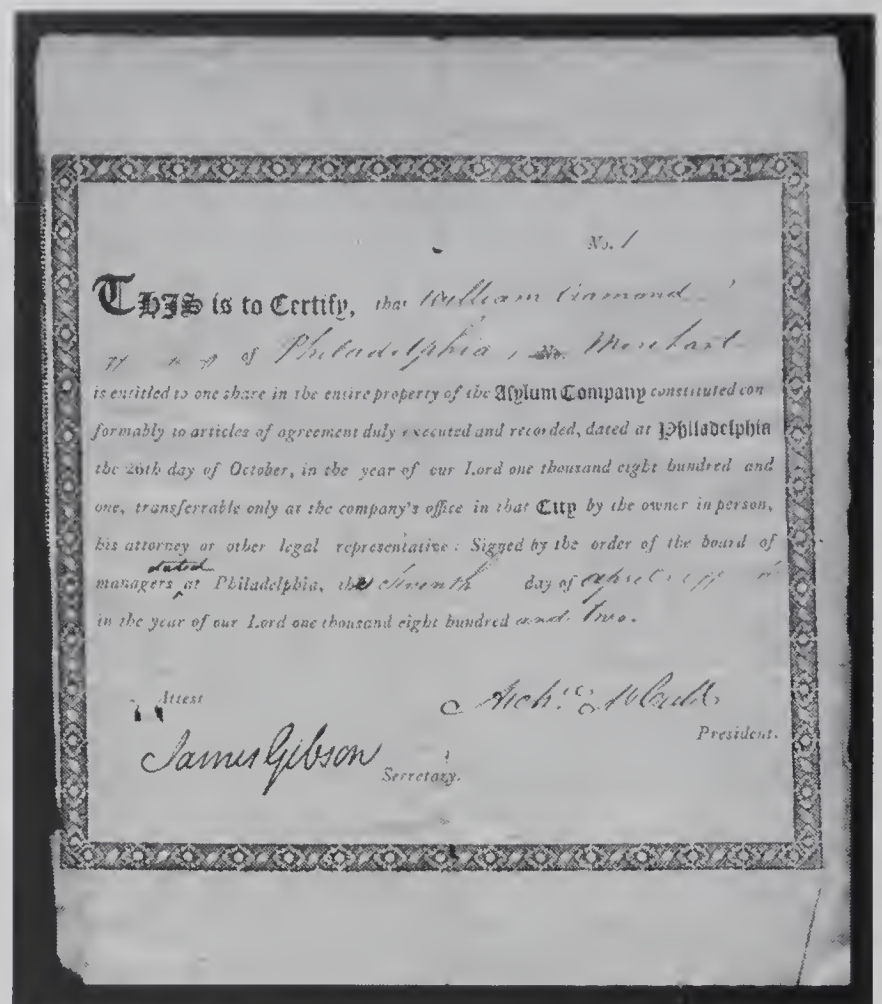 No. 1
THIS is to Certify, that William Cramond
of Philadelphia, Merchant
is entitled to one share in the entire property of the Asylum Company constituted con
formably to articles of agreement duly executed and recorded, dated at Philadelphia
the 26th day of October, in the year of our Lord one thousand eight hundred and
one, transferrable only at the company's office in that City by the owner in person,
his attorney or other legal representative: Signed by the order of the board of
dated
managers at Philadelphia, the day of april
in the year of our Lord one thousand eight hundred and two.
Attest
President.
James Gibson
Secretary.